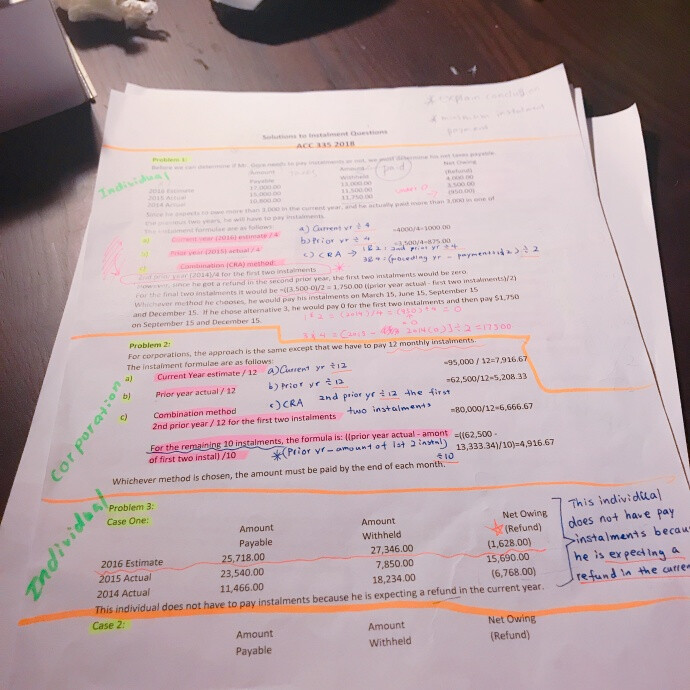 Solutions to Instalment Questions
ACC 335 2018
Problem 1:
Individual
Before we can determine if Mr. needs to pay instalments or not, we must determine his net taxes payable.
Amount Amount Net Owing
Payable Withheld (Refund)
paid
2016 Estimate 17,000.00 13,000.00 4,000.00
2015 Actual 15,000.00 11,500.00 3,500.00
2014 Actual 10,800.00 11,750.00 (950.00)
Since he expects to owe more than 3,000 in the current year, and he actually paid more than 3,000 in one of
the previous two years, he will have to pay instalments.
The instalment formulae are as follows:
a) Current year (2016) estimate / 4 a) Current yr ÷ 4 =4000/4=1000.00
b) Prior year (2015) actual / 4 b) Prior yr ÷ 4 =3,500/4=875.00
c) Combination (CRA) method: c) CRA → 1&2: 2nd prior yr ÷ 4
3&4: (preceding yr - payment1&2) ÷ 2
2nd prior year (2014)/4 for the first two instalments
However, since he got a refund in the second prior year, the first two instalments would be zero.
For the final two instalments it would be =((3,500-0)/2 = 1,750.00 ((prior year actual - first two instalments)/2)
Whichever method he chooses, he would pay his instalments on March 15, June 15, September 15
and December 15. If he chose alternative 3, he would pay 0 for the first two instalments and then pay $1,750
on September 15 and December 15.
1&2 = (2014)/4 = (950)÷4 = 0
Problem 2:
Corporation
For corporations, the approach is the same except that we have to pay 12 monthly instalments.
The instalment formulae are as follows:
a) Current Year estimate / 12 a) Current yr ÷ 12 =95,000 / 12=7,916.67
b) Prior year actual / 12 b) Prior yr ÷ 12 =62,500/12=5,208.33
c) Combination method c) CRA 2nd prior yr ÷ 12 the first
2nd prior year / 12 for the first two instalments two instalments =80,000/12=6,666.67
For the remaining 10 instalments, the formula is: ((prior year actual - amont =((62,500 -
of first two instal) /10 *(Prior yr - amount of 1st 2 instal) 13,333.34)/10)=4,916.67
÷10
Whichever method is chosen, the amount must be paid by the end of each month.
Individual
Problem 3:
Case One:
Amount Amount Net Owing
Payable Withheld (Refund)
2016 Estimate 25,718.00 27,346.00 (1,628.00)
2015 Actual 23,540.00 7,850.00 15,690.00
2014 Actual 11,466.00 18,234.00 (6,768.00)
This individual does not have to pay instalments because he is expecting a refund in the current year.
This individual
does not have pay
instalments becau
he is expecting a
refund in the curren
Case 2:
Amount Amount Net Owing
Payable Withheld (Refund)